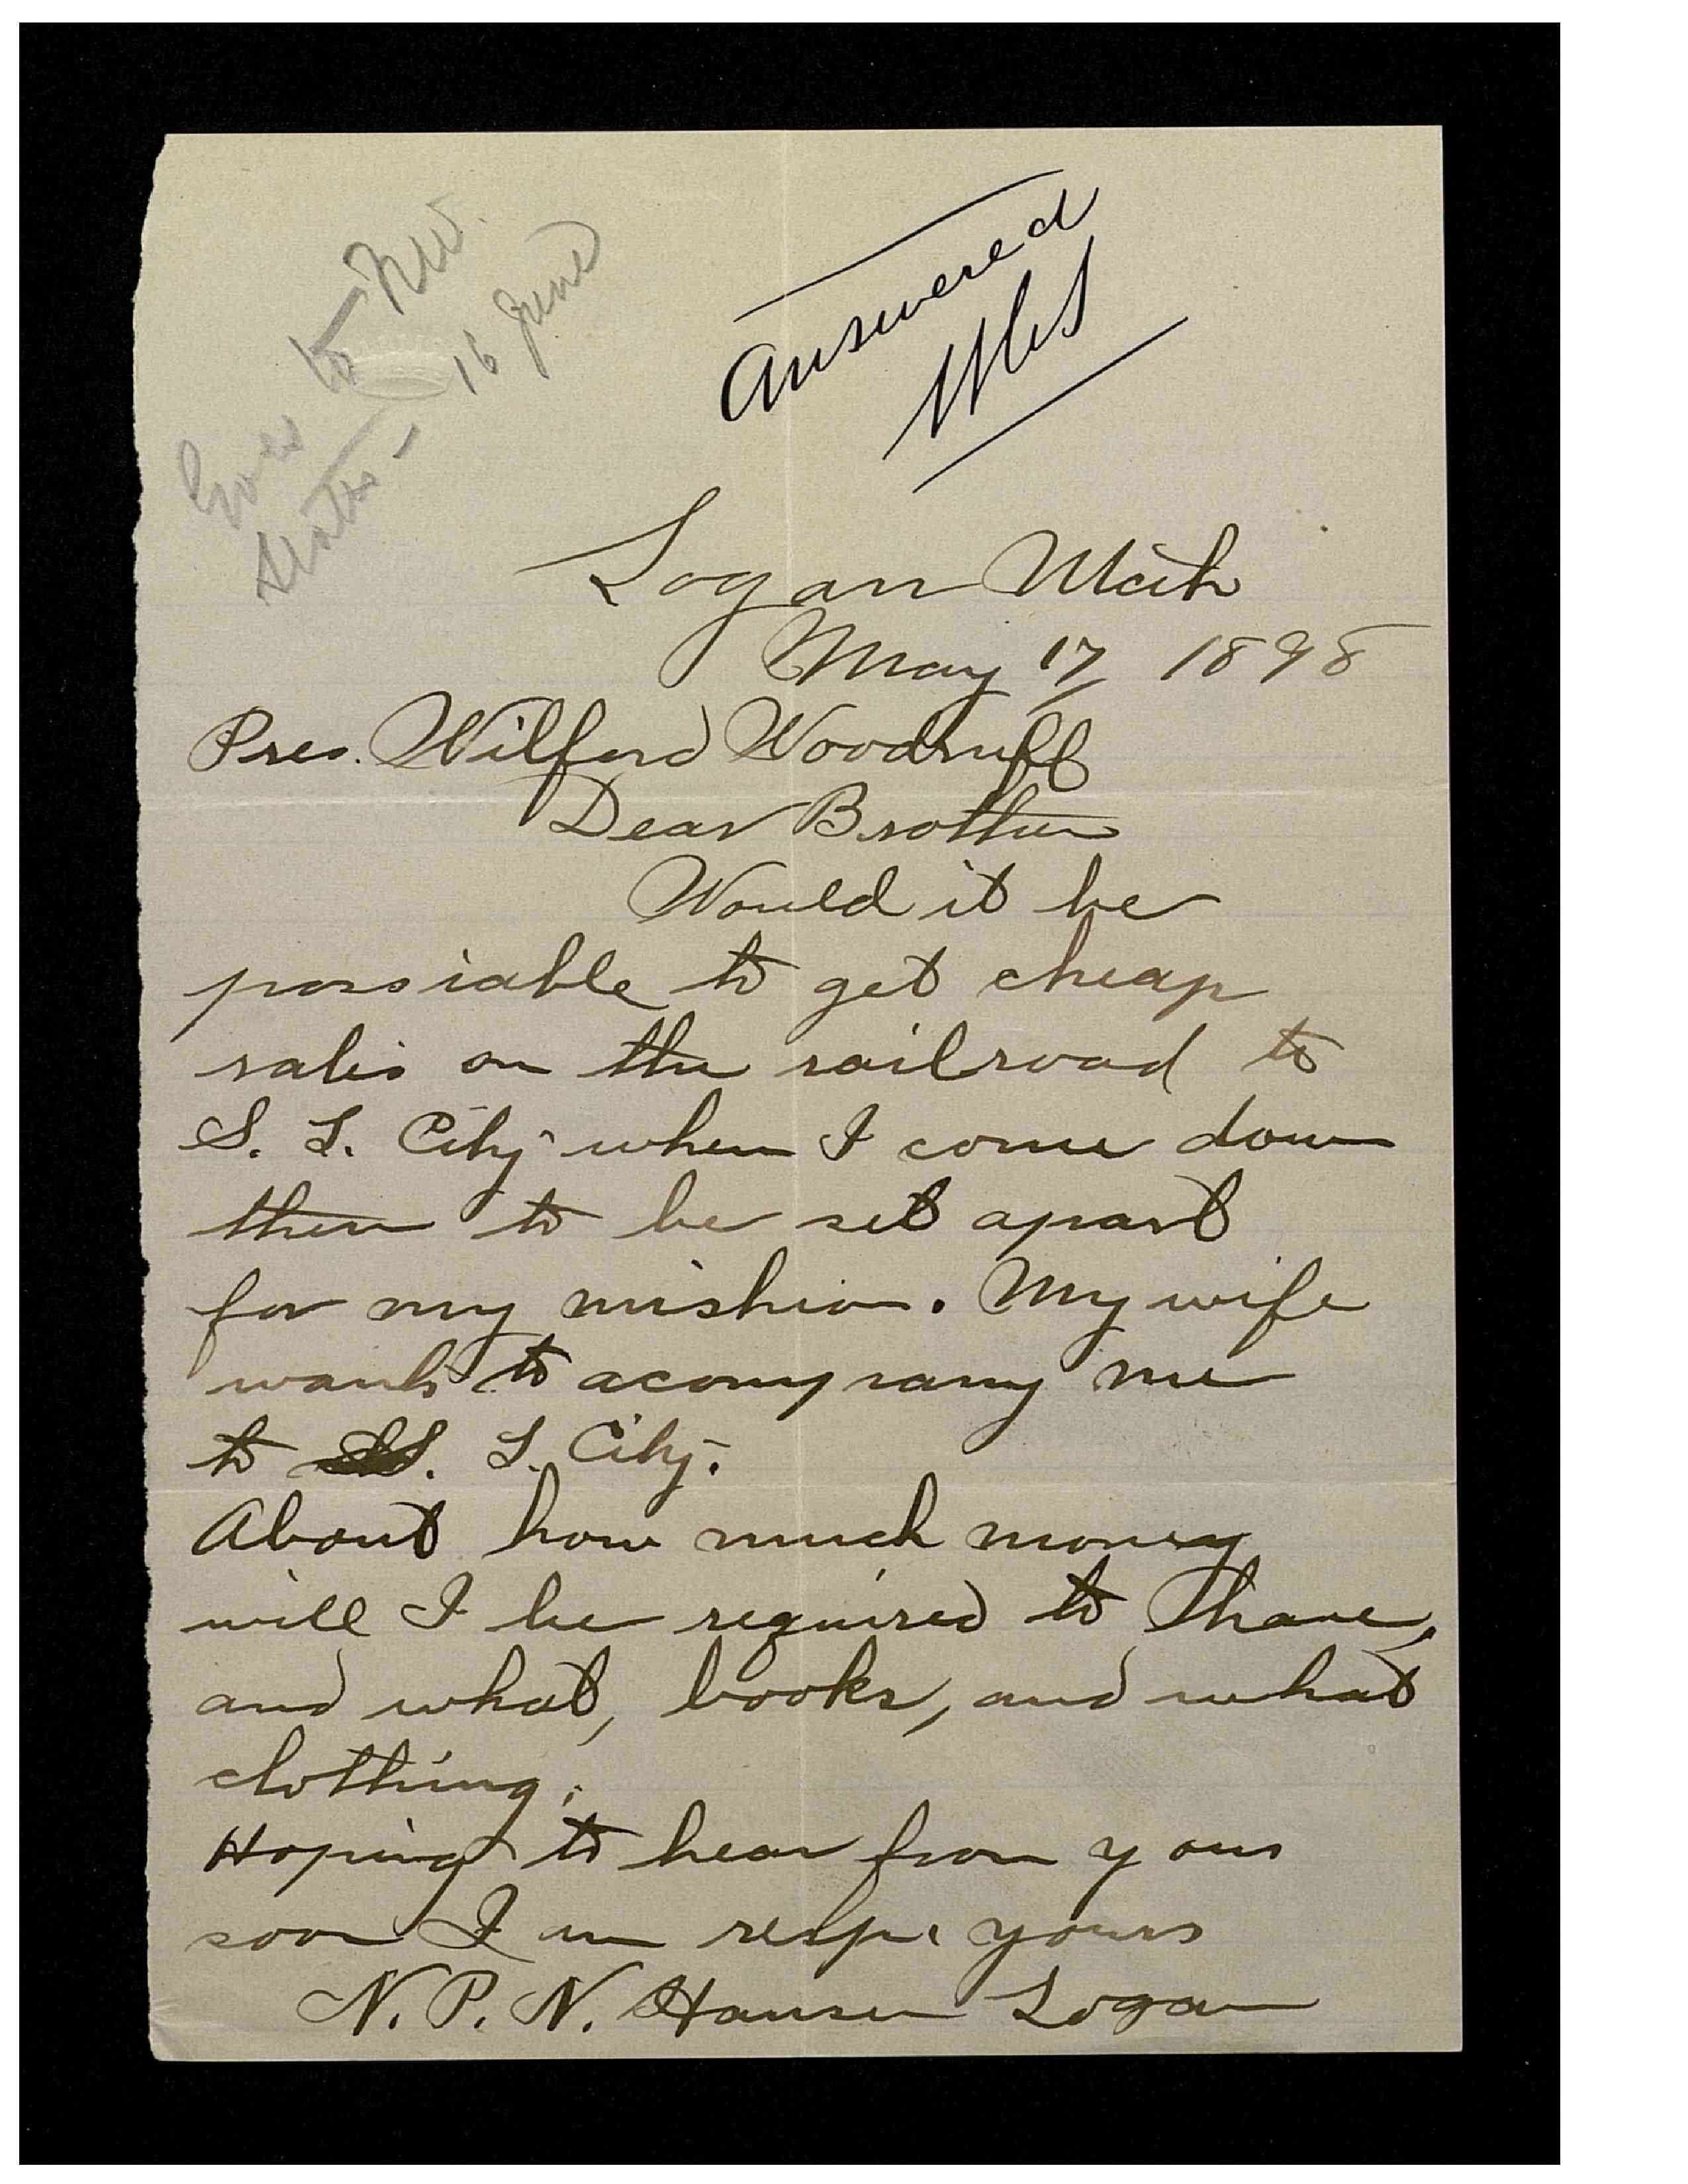 Goes to NW.
States – 16 June
Answered
Logan Utah
May 17, 1898
Pres. Wilford Woodruff
Dear Brother
Would it be
possiable to get cheap
rates on the railroad to
S. L. City when I come down
there to be set apart
for my mishion. My wife
wants to acompany me
to S. L. City.
About how much money
will I be required to have,
and what, books, and what
clothing.
Hoping to hear from you
soon I am resp. yours
N. P. N. Hansen Logan